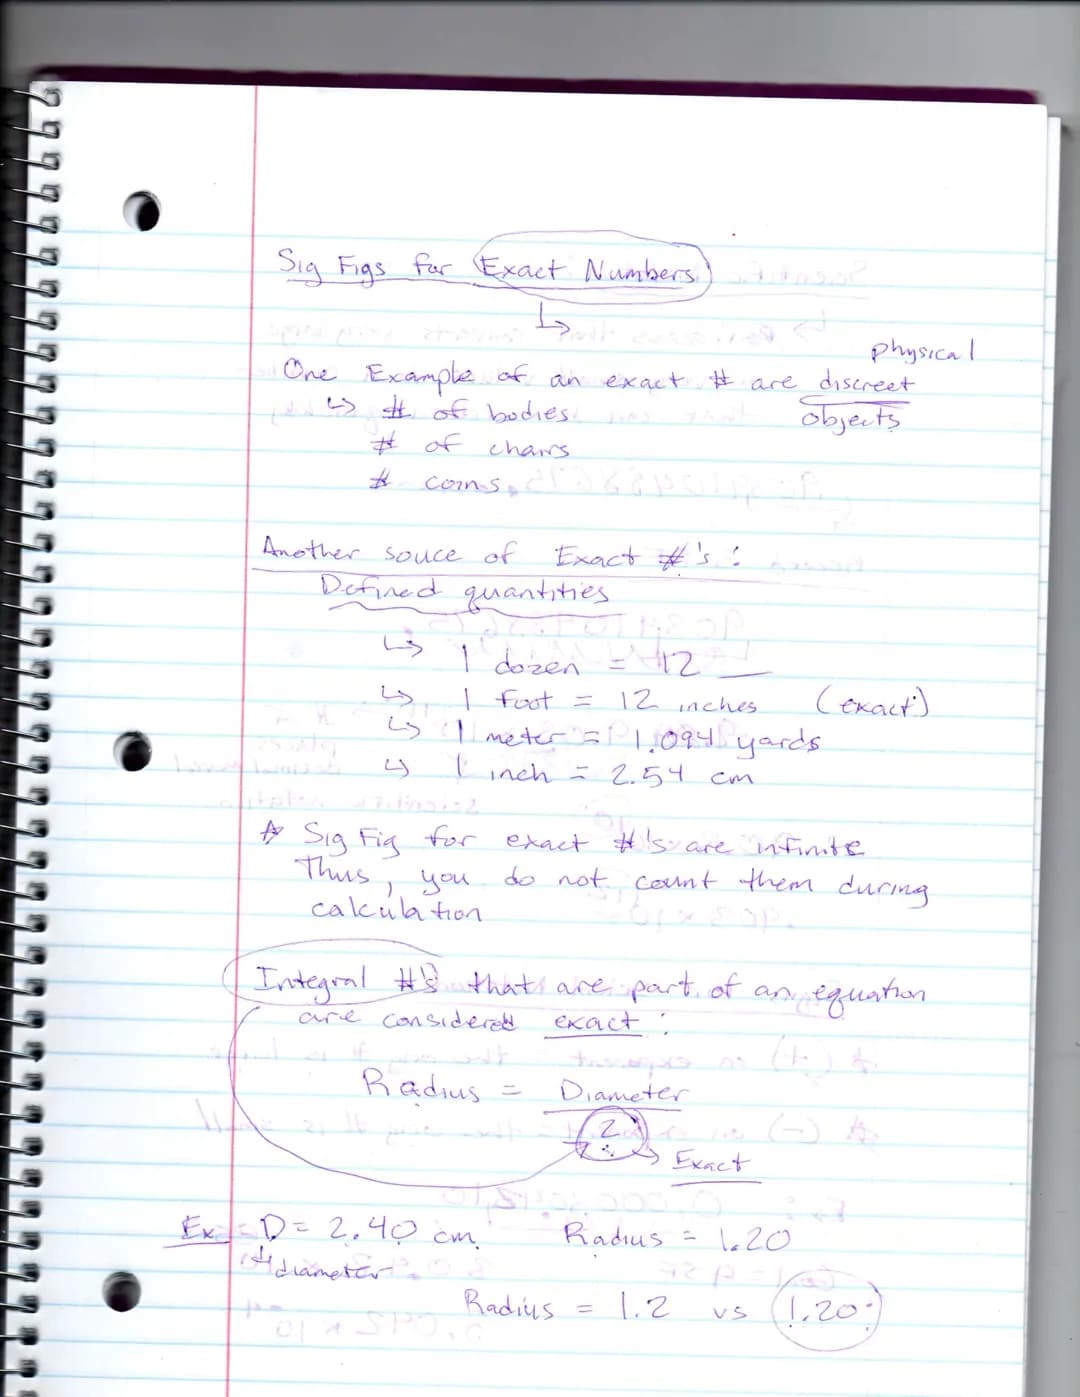 Sig Figs for Exact Numbers
↳
physical
One Example of an exact # are discreet
objects
↳ # of bodies
# of chairs
# coins
Another souce of Exact #'s :
Defined quantities
↳ 1 dozen = 12 __
↳ 1 foot = 12 inches (exact)
↳ 1 meter = 1.094 yards
↳ 1 inch = 2.54 cm
☆ Sig Fig for exact #'s are infinite
Thus, you do not count them during
calculation
Integral #'s that are part of an equation
are considered exact :
Radius = Diameter
2
↳ Exact
Ex D = 2.40 cm Radius = 1.20
↳ diameter
Radius = 1.2 vs 1.20